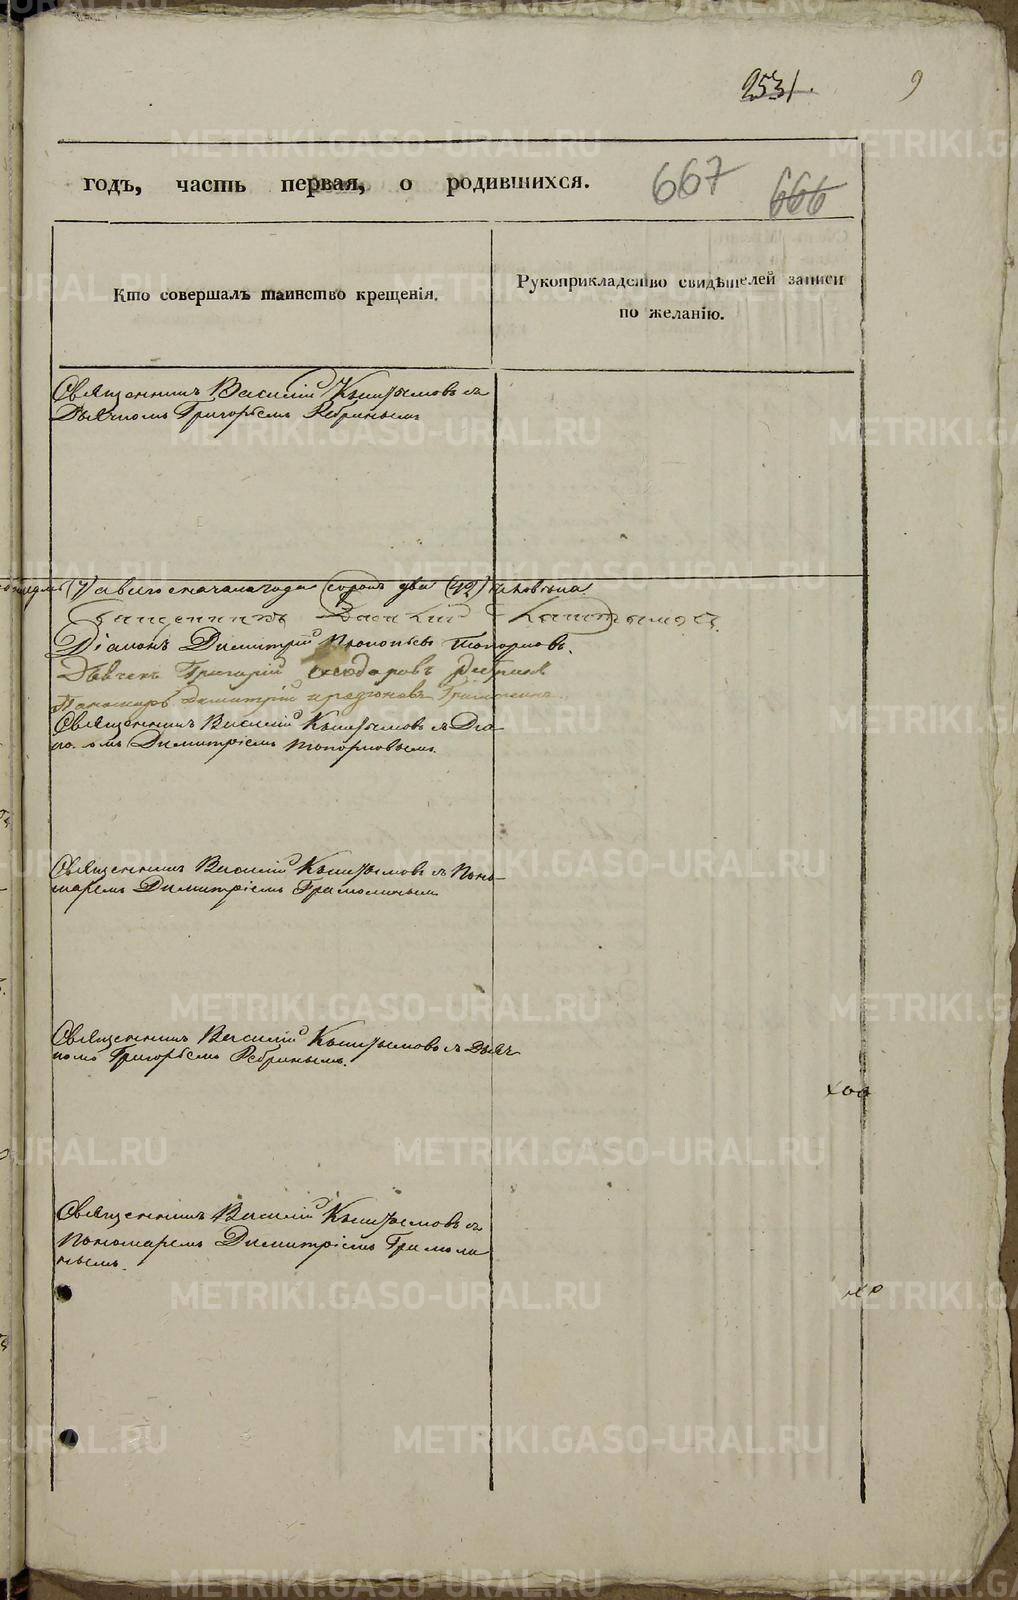 253 9
годъ, часть первая, о родившихся. 667 666
Кто совершалъ таинство крещенія.
Рукоприкладство свидѣтелей записи
по желанію.
Священникъ Василій Кыштымовъ съ
Дьячкомъ Григорьемъ Ребринымъ
(7) а всего сначала года сорокъ два (42)
Священникъ Василий Каштымовъ.
Діаконъ Димитрій Прокопьевъ Топорковъ.
Дьячекъ Григорій Феодоровъ Ребринъ
Пономарь Димитрій
Священникъ Василій Кыштымовъ съ Діа-
кономъ Димитріемъ Топорковымъ.
Священникъ Василій Кыштымовъ съ Поно-
маремъ Димитріемъ Грамолинымъ
Священникъ Василій Кыштымовъ съ Дьяч-
комъ Григорьемъ Ребринымъ.
Священникъ Василій Кыштымовъ съ
Пономаремъ Димитріемъ Грамоли
нымъ.
METRIKI.GASO-URAL.RU